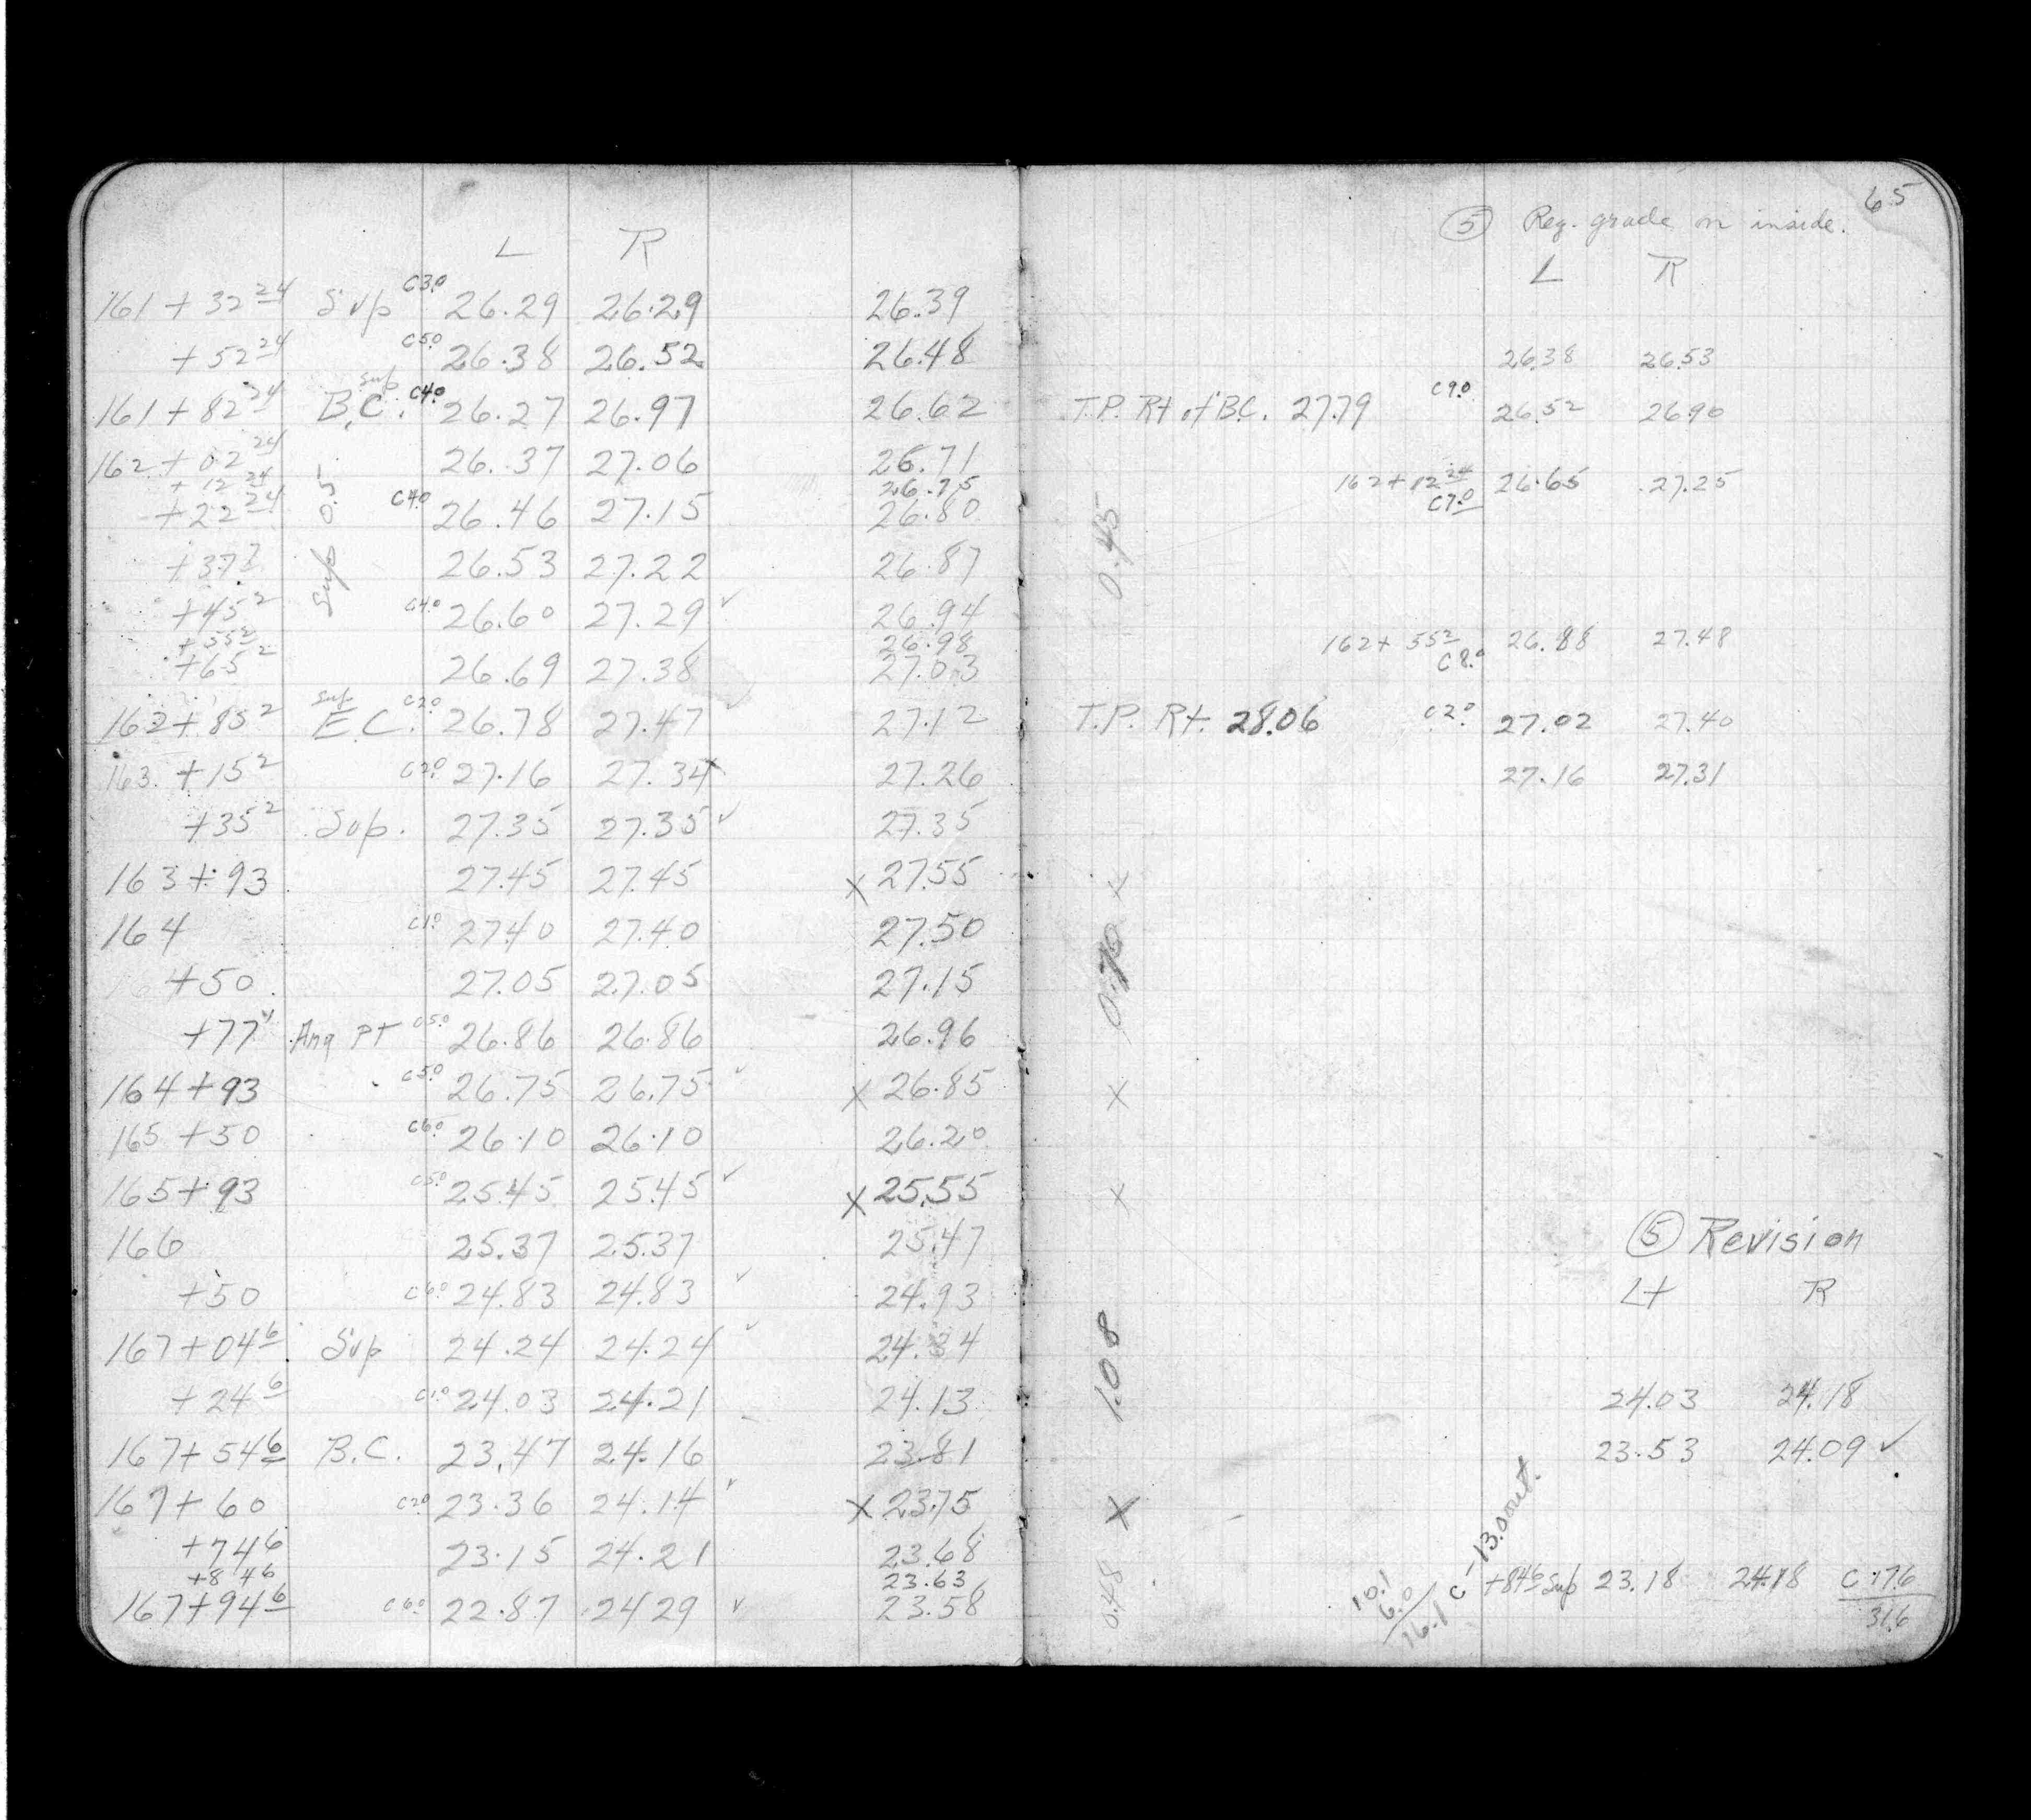 L R
161 + 32 24 Sup C3.0 26.29 26.29 26.39
+ 52 24 C5.0 26.38 26.52 26.48
161 + 82 24 Sup B.C. C4.0 26.27 26.97 26.62
162 + 02 24 26.37 27.06 26.71
+ 12 24 26.75
+ 22 24 C4.0 26.46 27.15 26.80
Sup 0.5
+ 37 7 26.53 27.22 26.87
+ 45 2 C4.0 26.60 27.29 ✓ 26.94
+ 55 2 26.98
+ 65 2 26.69 27.38 27.03
162 + 85 2 Sup E.C. C2.0 26.78 27.47 27.12
163 + 15 2 C2.0 27.16 27.34 27.26
+ 35 2 Sup. 27.35 27.35 ✓ 27.35
163 + 93 27.45 27.45 x 27.55
164 C1.0 27.40 27.40 27.50
+ 50 27.05 27.05 27.15
+ 77 Ang PT C5.0 26.86 26.86 26.96
164 + 93 C5.0 26.75 26.75 ✓ x 26.85
165 + 50 C6.0 26.10 26.10 26.20
165 + 93 C5.0 25.45 25.45 ✓ x 25.55
166 25.37 25.37 25.47
+ 50 C6.0 24.83 24.83 ✓ 24.93
167 + 04 6 Sup 24.24 24.24 ✓ 24.34
+ 24 6 C1.0 24.03 24.21 24.13
167 + 54 6 B.C. 23.47 24.16 23.81
167 + 60 C2.0 23.36 24.14 ✓ x 23.75
+ 74 6 23.15 24.21 23.68
+ 84 6 23.63
167 + 94 6 C6.0 22.87 24.29 ✓ 23.58
65
(5) Reg. grade on inside.
L R
26.38 26.53
T.P. Rt of B.C. 27.79 C9.0 26.52 26.90
162 + 12 24 C7.0 26.65 27.25
0.45
162 + 55 2 C8.0 26.88 27.48
T.P. Rt. 28.06 C2.0 27.02 27.40
27.16 27.31
x
0.70
x
x
(5) Revision
Lt R
1.08
24.03 24.18
23.53 24.09 ✓
x
C - 13.0 out.
+ 84 6 Sup 23.18 24.18 C 17.6
31.6
10.1
6.0
16.1
0.48